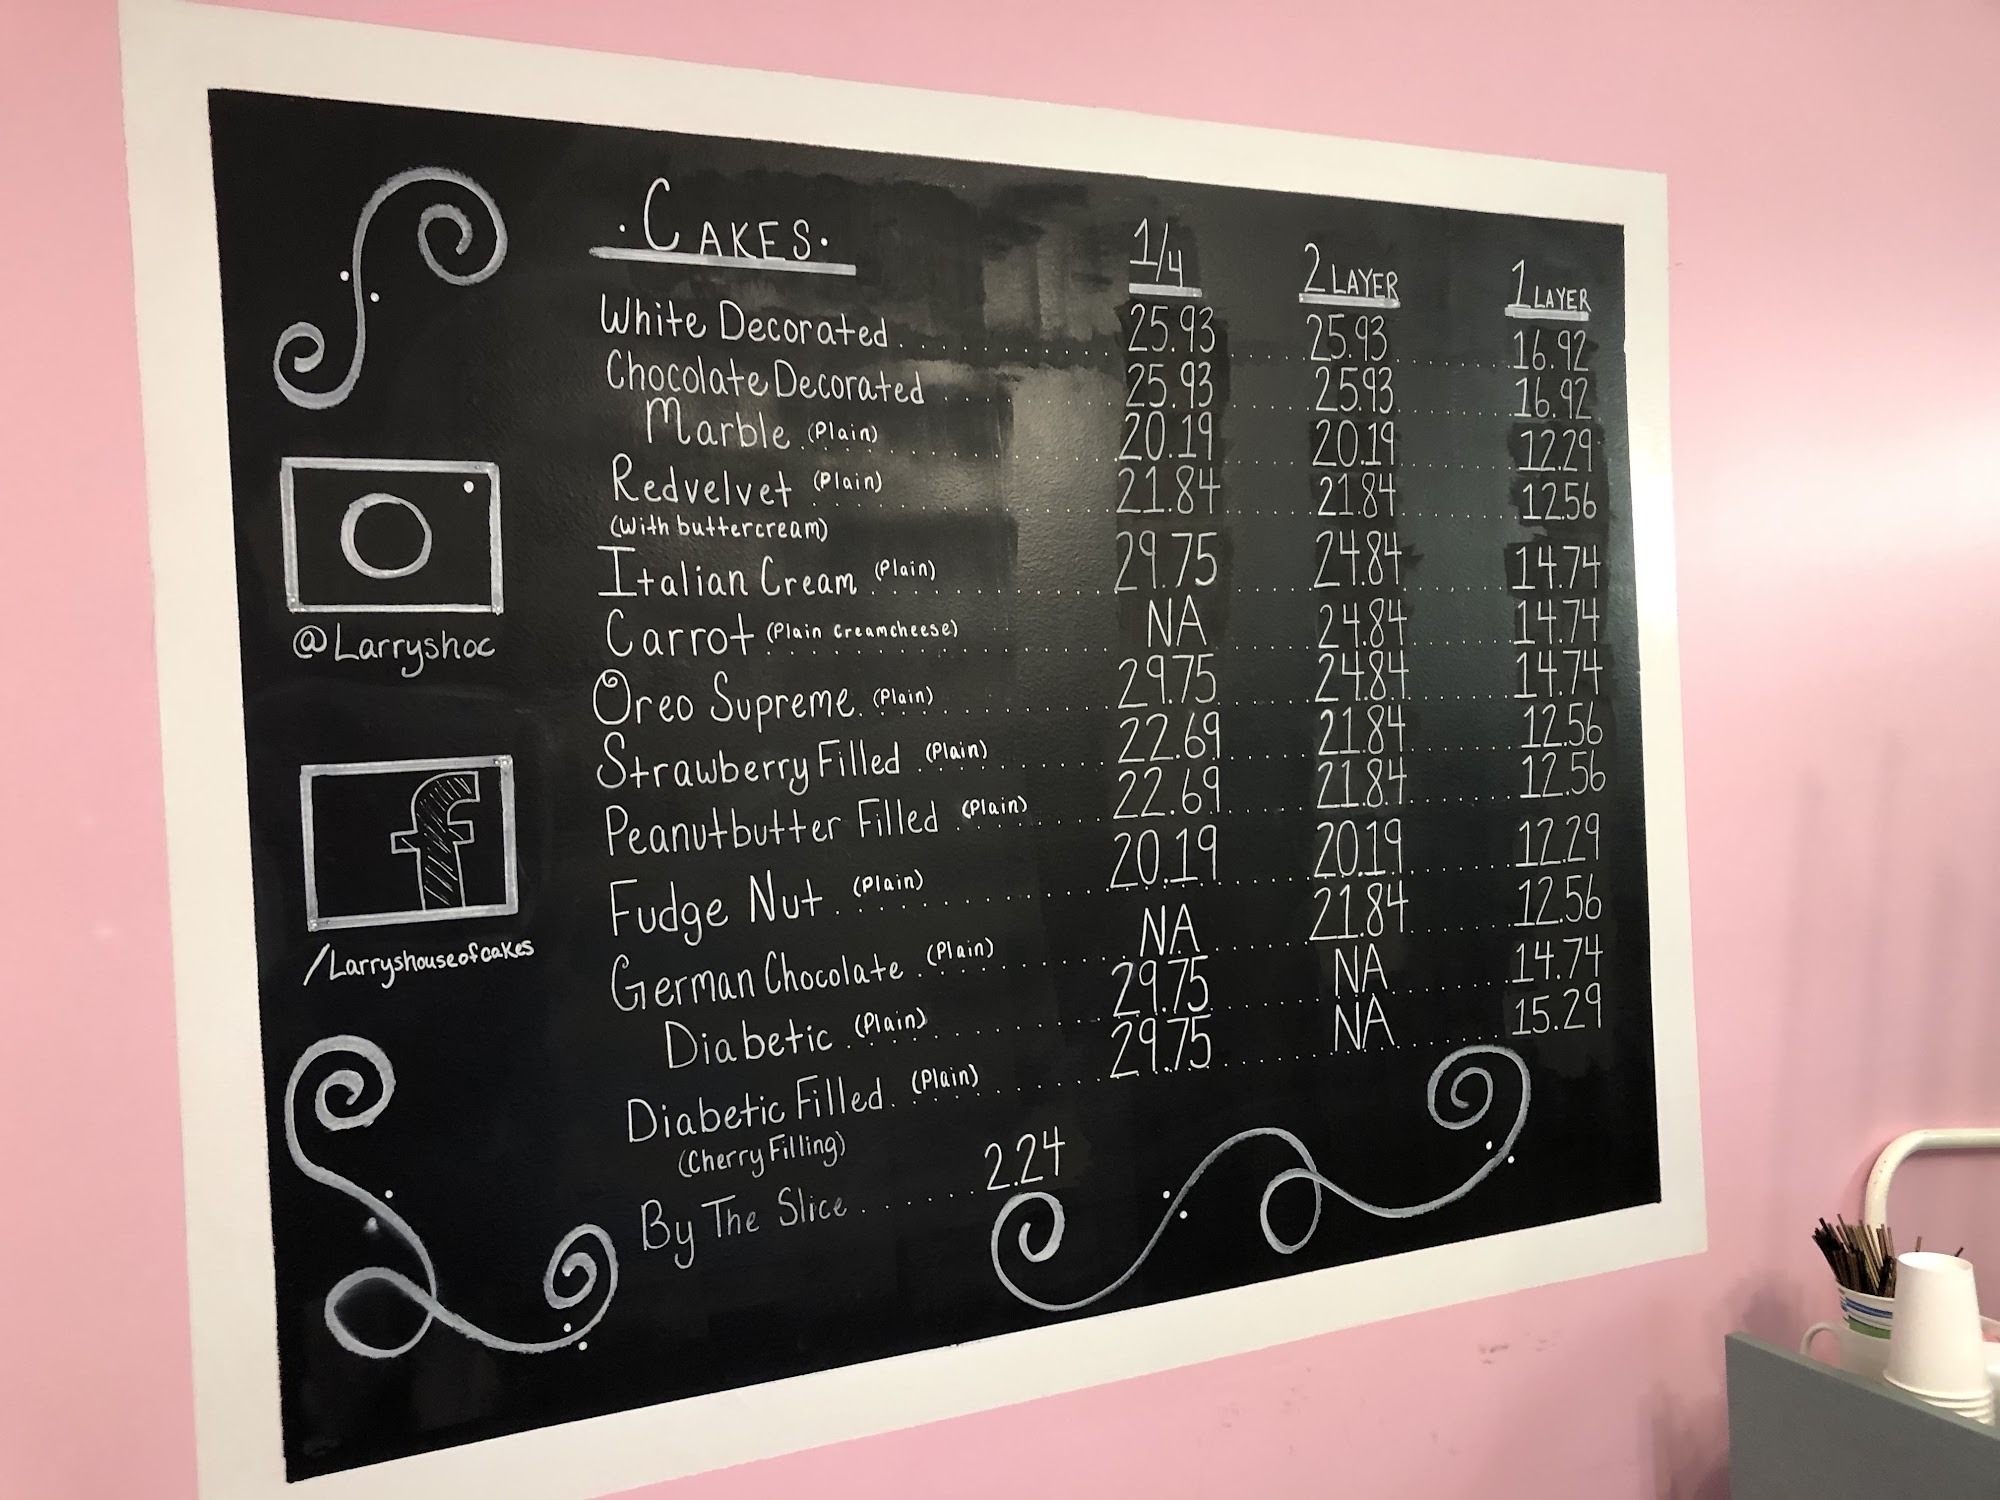 · CAKES ·	1/4	2 LAYER	1 LAYER
White Decorated	25.93	25.93	16.92
Chocolate Decorated	25.93	25.93	16.92
Marble (Plain)	20.19	20.19	12.29
Redvelvet (Plain)	21.84	21.84	12.56
(With buttercream)
Italian Cream (Plain)	29.75	24.84	14.74
Carrot (Plain Creamcheese)	NA	24.84	14.74
Oreo Supreme (Plain)	29.75	24.84	14.74
Strawberry Filled (Plain)	22.69	21.84	12.56
Peanutbutter Filled (Plain)	22.69	21.84	12.56
Fudge Nut (Plain)	20.19	20.19	12.29
German Chocolate (Plain)	NA	21.84	12.56
Diabetic (Plain)	29.75	NA	14.74
Diabetic Filled (Plain)	29.75	NA	15.29
(Cherry Filling)
By The Slice	2.24
@Larryshoc
f
/Larryshouseofcakes